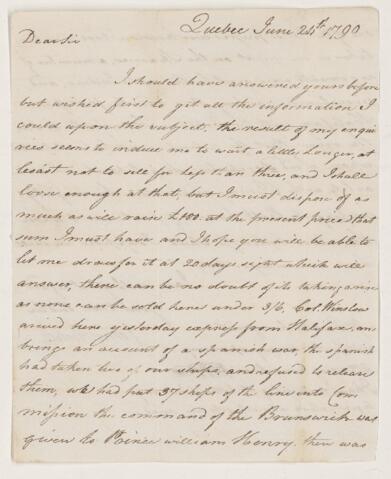 Quebec June 24th 1790
Dear Sir
I should have answered yours before
but wished first to get all the information I
could upon the subject. the result of my enqui
ries seems to induce me to wait a little longer, at
least not to sell for less than three, and I shall
loose enough at that, but I must dispose of as
much as will raise £100. at the present price, that
sum I must have and I hope you will be able to
let me draw for it at 20 days sight which will
answer, there can be no doubt of its taking a rise
as none can be sold here under 3/6, Col. Winslow
arived here yesterday express from Halifax, an
brings an account of a spanish war, the spanish
had taken two of our ships, and refused to release
them, we had put 37 ships of the line into Com
mission the command of the Brunswick was
given to Prince william Henry. there was